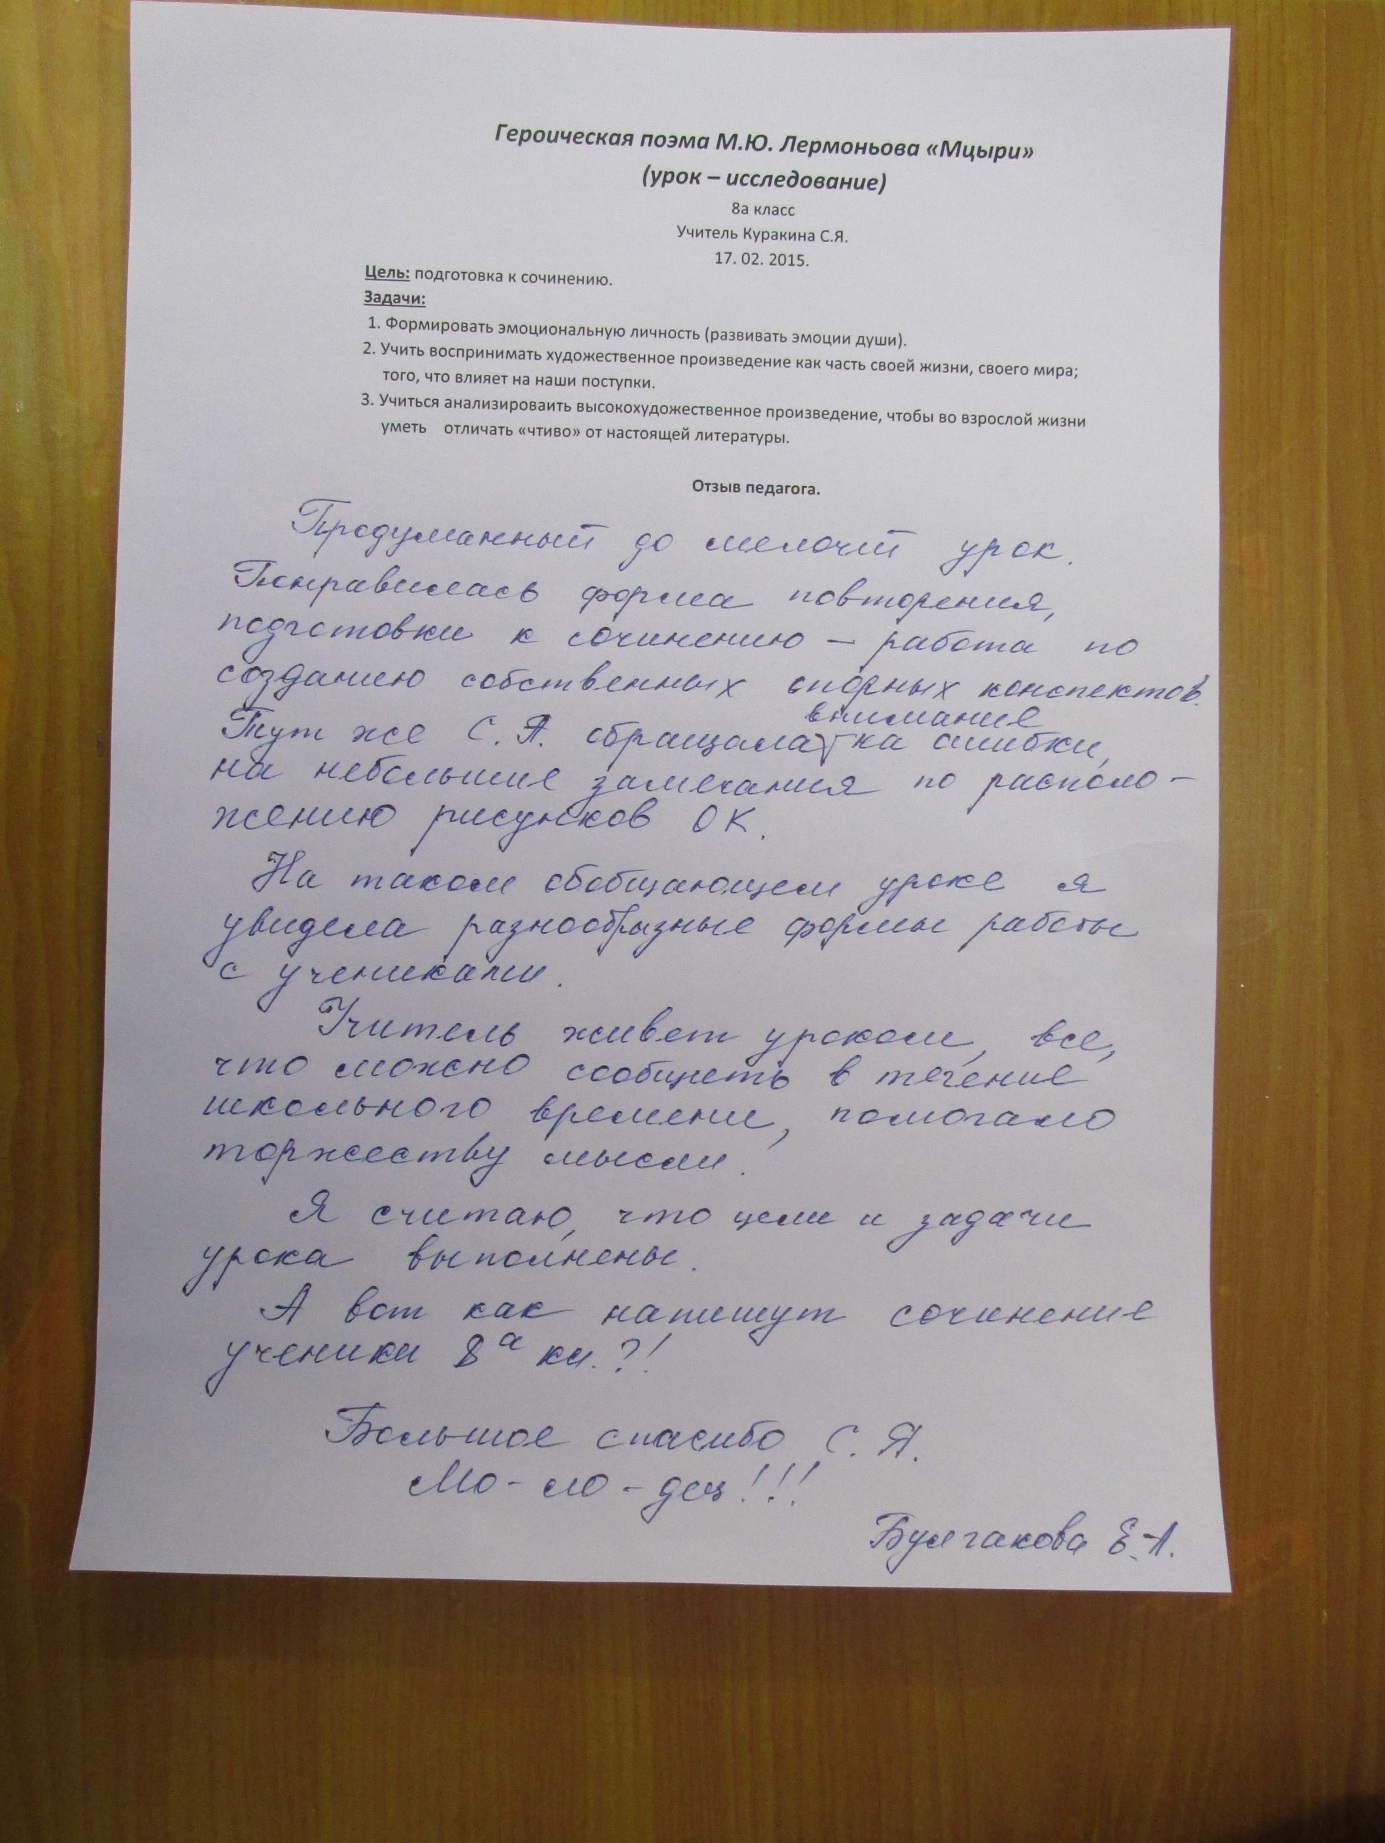 Героическая поэма М.Ю. Лермоньова «Мцыри»
(урок – исследование)
8а класс
Учитель Куракина С.Я.
17. 02. 2015.
Цель: подготовка к сочинению.
Задачи:
1. Формировать эмоциональную личность (развивать эмоции души).
2. Учить воспринимать художественное произведение как часть своей жизни, своего мира;
того, что влияет на наши поступки.
3. Учиться анализироваить высокохудожественное произведение, чтобы во взрослой жизни
уметь отличать «чтиво» от настоящей литературы.
Отзыв педагога.
Продуманный до мелочей урок.
Понравилась форма повторения,
подготовки к сочинению – работа по
созданию собственных опорных конспектов.
внимание
Тут же С. Я. обращала на ошибки,
на небольшие замечания по располо-
жению рисунков ОК.
На таком обобщающем уроке я
увидела разнообразные формы работы
с учениками.
Учитель живет уроком, все,
что можно сообщить в течение
школьного времени, помогало
торжеству мысли.
Я считаю, что цели и задачи
урока выполнены.
А вот как напишут сочинение
ученики 8а кл.?!
Большое спасибо, С. Я.
Мо-ло-дец!!!
Булгакова Е.А.